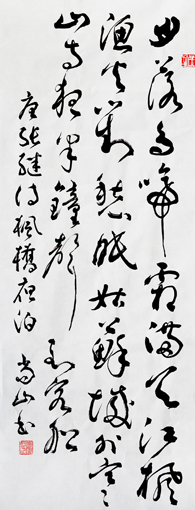 月落烏啼霜滿天江楓
漁火對愁眠姑蘇城外寒
山寺夜半鐘聲到客船
唐張繼詩楓橋夜泊 尚山書